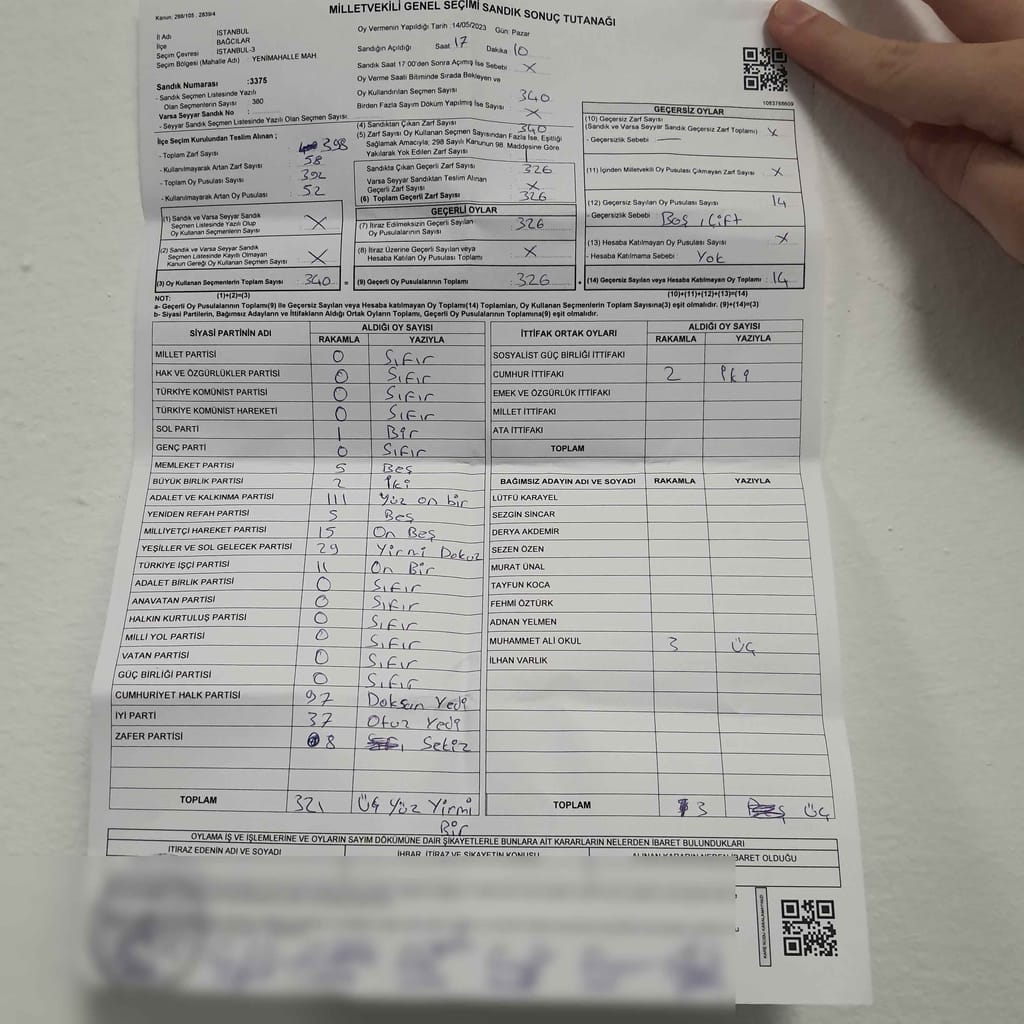 Kanun: 298/105 ; 2839/4
MİLLETVEKİLİ GENEL SEÇİMİ SANDIK SONUÇ TUTANAĞI
İl Adı : İSTANBUL
İlçe : BAĞCILAR
Seçim Çevresi : İSTANBUL-3
Seçim Bölgesi (Mahalle Adı) : YENİMAHALLE MAH
Sandık Numarası : 3375
- Sandık Seçmen Listesinde Yazılı
Olan Seçmenlerin Sayısı : 380
Varsa Seyyar Sandık No :
- Seyyar Sandık Seçmen Listesinde Yazılı Olan Seçmen Sayısı
İlçe Seçim Kurulundan Teslim Alınan ;
- Toplam Zarf Sayısı : 398
- Kullanılmayarak Artan Zarf Sayısı : 58
- Toplam Oy Pusulası Sayısı : 392
- Kullanılmayarak Artan Oy Pusulası : 52
(1) Sandık ve Varsa Seyyar Sandık
Seçmen Listesinde Yazılı Olup
Oy Kullanan Seçmenlerin Sayısı : X
(2) Sandık ve Varsa Seyyar Sandık
Seçmen Listesinde Kayıtlı Olmayan
Kanun Gereği Oy Kullanan Seçmen Sayısı : X
(3) Oy Kullanan Seçmenlerin Toplam Sayısı : 340
(1)+(2)=(3)
Oy Vermenin Yapıldığı Tarih : 14/05/2023 Gün: Pazar
Sandığın Açıldığı Saat 17 Dakika 10
Sandık Saat 17 00'den Sonra Açımış İse Sebebi : X
Oy Verme Saati Bitiminde Sırada Bekleyen ve
Oy Kullandırılan Seçmen Sayısı : 340
Birden Fazla Sayım Döküm Yapılmış İse Sayısı : X
(4) Sandıktan Çıkan Zarf Sayısı : 340
(5) Zarf Sayısı Oy Kullanan Seçmen Sayısından Fazla İse, Eşitliği
Sağlamak Amacıyla, 298 Sayılı Kanunun 98. Maddesine Göre
Yakılarak Yok Edilen Zarf Sayısı :
Sandıkta Çıkan Geçerli Zarf Sayısı : 326
Varsa Seyyar Sandıktan Teslim Alınan
Geçerli Zarf Sayısı : X
(6) Toplam Geçerli Zarf Sayısı : 326
GEÇERLİ OYLAR
(7) İtiraz Edilmeksizin Geçerli Sayılan
Oy Pusulalarının Sayısı : 326
(8) İtiraz Üzerine Geçerli Sayılan veya
Hesaba Katılan Oy Pusulası Toplamı : X
(9) Geçerli Oy Pusulalarının Toplamı : 326
1083786609
GEÇERSİZ OYLAR
(10) Geçersiz Zarf Sayısı
(Sandık ve Varsa Seyyar Sandık Geçersiz Zarf Toplamı) : X
- Geçersizlik Sebebi :
(11) İçinden Milletvekili Oy Pusulası Çıkmayan Zarf Sayısı : X
(12) Geçersiz Sayılan Oy Pusulası Sayısı : 14
- Geçersizlik Sebebi : Boş, Çift
(13) Hesaba Katılmayan Oy Pusulası Sayısı : X
- Hesaba Katılmama Sebebi : Yok
(14) Geçersiz Sayılan veya Hesaba Katılmayan Oy Toplamı : 14
(10)+(11)+(12)+(13)=(14)
NOT:
a- Geçerli Oy Pusulalarının Toplamı(9) İle Geçersiz Sayılan veya Hesaba katılmayan Oy Toplamı(14) Toplamları, Oy Kullanan Seçmenlerin Toplam Sayısına(3) eşit olmalıdır. (9)+(14)=(3)
b- Siyasi Partilerin, Bağımsız Adayların ve İttifakların Aldığı Ortak Oyların Toplamı, Geçerli Oy Pusulalarının Toplamına(9) eşit olmalıdır.
SİYASİ PARTİNİN ADI ALDIĞI OY SAYISI
RAKAMLA YAZIYLA
MİLLET PARTİSİ 0 Sıfır
HAK VE ÖZGÜRLÜKLER PARTİSİ 0 Sıfır
TÜRKİYE KOMÜNİST PARTİSİ 0 Sıfır
TÜRKİYE KOMÜNİST HAREKETİ 0 Sıfır
SOL PARTİ 1 Bir
GENÇ PARTİ 0 Sıfır
MEMLEKET PARTİSİ 5 Beş
BÜYÜK BİRLİK PARTİSİ 2 İki
ADALET VE KALKINMA PARTİSİ 111 Yüz on bir
YENİDEN REFAH PARTİSİ 5 Beş
MİLLİYETÇİ HAREKET PARTİSİ 15 On Beş
YEŞİLLER VE SOL GELECEK PARTİSİ 29 Yirmi Dokuz
TÜRKİYE İŞÇİ PARTİSİ 11 On Bir
ADALET BİRLİK PARTİSİ 0 Sıfır
ANAVATAN PARTİSİ 0 Sıfır
HALKIN KURTULUŞ PARTİSİ 0 Sıfır
MİLLİ YOL PARTİSİ 0 Sıfır
VATAN PARTİSİ 0 Sıfır
GÜÇ BİRLİĞİ PARTİSİ 0 Sıfır
CUMHURİYET HALK PARTİSİ 97 Doksan Yedi
İYİ PARTİ 37 Otuz Yedi
ZAFER PARTİSİ 8 Sekiz
TOPLAM 321 Üç Yüz Yirmi
Bir
İTTİFAK ORTAK OYLARI ALDIĞI OY SAYISI
RAKAMLA YAZIYLA
SOSYALİST GÜÇ BİRLİĞİ İTTİFAKI
CUMHUR İTTİFAKI 2 İki
EMEK VE ÖZGÜRLÜK İTTİFAKI
MİLLET İTTİFAKI
ATA İTTİFAKI
TOPLAM
BAĞIMSIZ ADAYIN ADI VE SOYADI RAKAMLA YAZIYLA
LÜTFÜ KARAYEL
SEZGİN SİNCAR
DERYA AKDEMİR
SEZEN ÖZEN
MURAT ÜNAL
TAYFUN KOCA
FEHMİ ÖZTÜRK
ADNAN YELMEN
MUHAMMET ALİ OKUL 3 Üç
İLHAN VARLIK
TOPLAM 3 Üç
OYLAMA İŞ VE İŞLEMLERİNE VE OYLARIN SAYIM DÖKÜMÜNE DAİR ŞİKAYETLERLE BUNLARA AİT KARARLARIN NELERDEN İBARET BULUNDUKLARI
İTİRAZ EDENİN ADI VE SOYADI İHBAR, İTİRAZ VE ŞİKAYETİN KONUSU ALINAN KARARIN NEDEN İBARET OLDUĞU